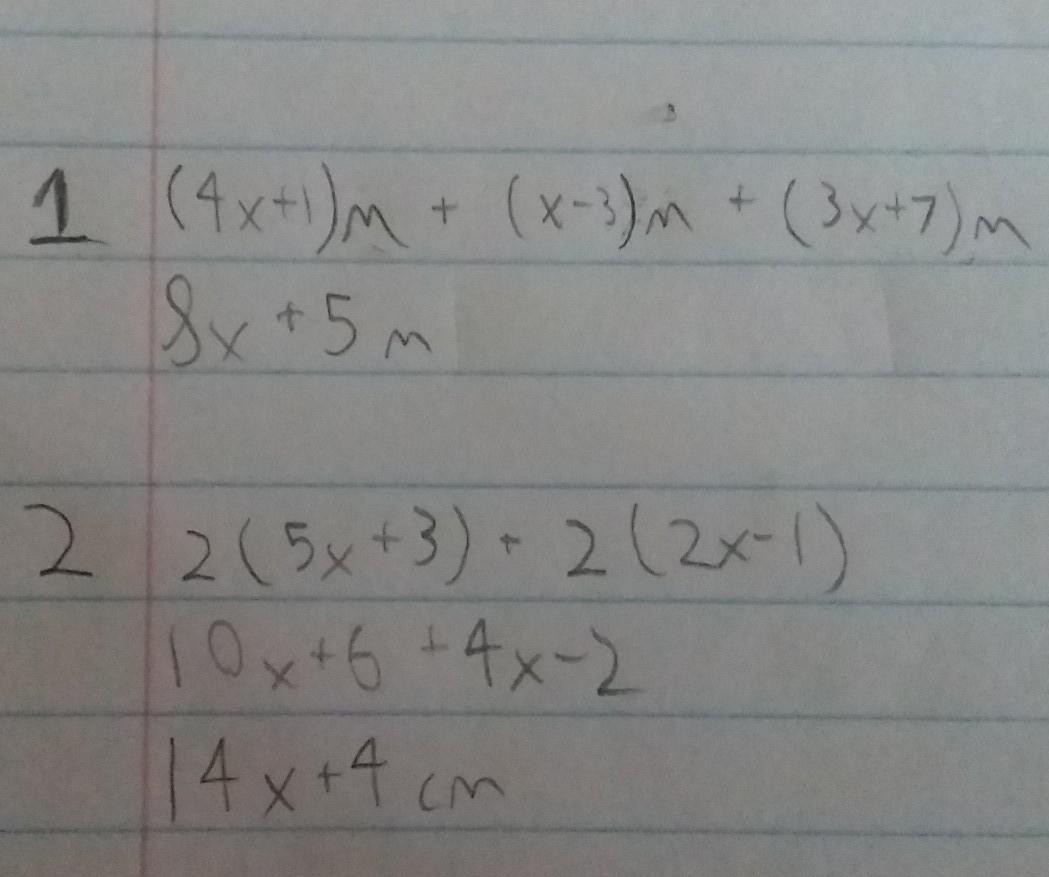 1 (4x+1)m + (x-3)m + (3x+7)m
8x + 5 m
2 2(5x+3) + 2(2x-1)
10x+6 +4x-2
14x+4 cm